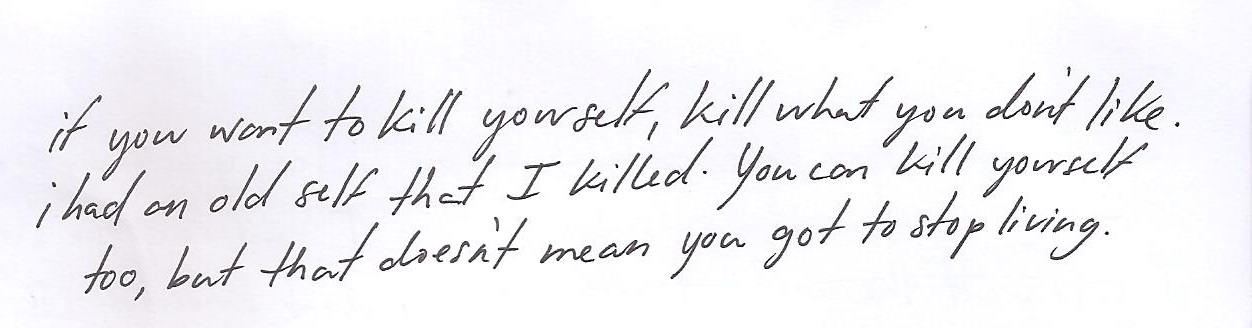 if you want to kill yourself, kill what you don't like.
i had an old self that I killed. You can kill yourself
too, but that doesn't mean you got to stop living.